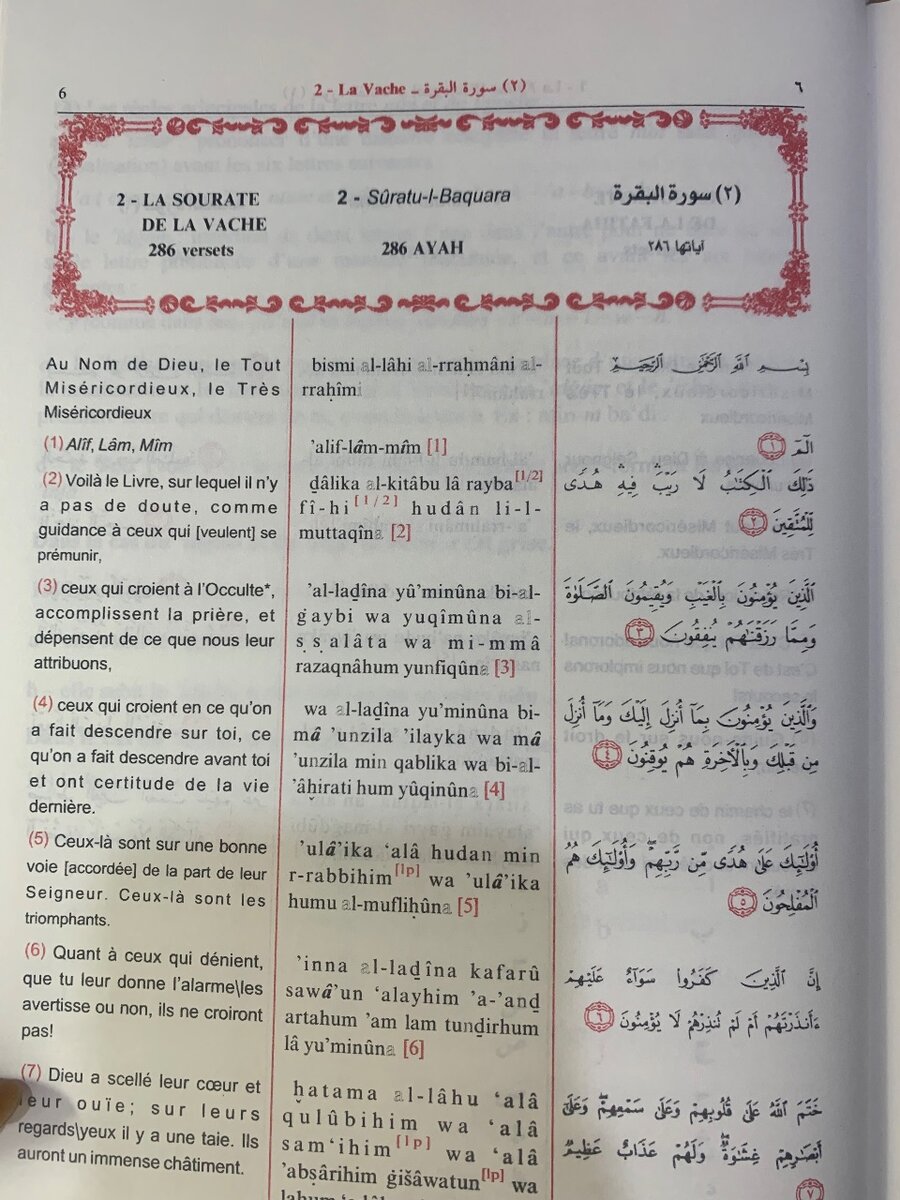 6
2 - La Vache - سورة البقرة (٢)
٦
2 - LA SOURATE
DE LA VACHE
286 versets
2 - Sûratu-l-Baquara
286 AYAH
(٢) سورة البقرة
آياتها ٢٨٦
Au Nom de Dieu, le Tout
Miséricordieux, le Très
Miséricordieux
(1) Alîf, Lâm, Mîm
(2) Voilà le Livre, sur lequel il n'y
a pas de doute, comme
guidance à ceux qui [veulent] se
prémunir,
(3) ceux qui croient à l'Occulte*,
accomplissent la prière, et
dépensent de ce que nous leur
attribuons,
(4) ceux qui croient en ce qu'on
a fait descendre sur toi, ce
qu'on a fait descendre avant toi
et ont certitude de la vie
dernière.
(5) Ceux-là sont sur une bonne
voie [accordée] de la part de leur
Seigneur. Ceux-là sont les
triomphants.
(6) Quant à ceux qui dénient,
que tu leur donne l'alarme\les
avertisse ou non, ils ne croiront
pas!
(7) Dieu a scellé leur cœur et
leur ouïe; sur leurs
regards\yeux il y a une taie. Ils
auront un immense châtiment.
bismi al-lâhi al-rraḥmâni al-
rraḥîmi
’alif-lâm-mîm [1]
ḏâlika al-kitâbu lâ rayba[1/2]
fî-hi[1/2] hudân li-l-
muttaqîna [2]
’al-laḏîna yû’minûna bi-al-
ġaybi wa yuqîmûna al-
ṣṣalâta wa mi-mmâ
razaqnâhum yunfiqûna [3]
wa al-laḏîna yu’minûna bi-
mâ ’unzila ’ilayka wa mâ
’unzila min qablika wa bi-al-
’âḫirati hum yûqinûna [4]
’ulâ’ika ‘alâ hudan min
r-rabbihim[lp] wa ’ulâ’ika
humu al-mufliḥûna [5]
’inna al-laḏîna kafarû
sawâ’un ‘alayhim ’a-’anḏ
artahum ’am lam tunḏirhum
lâ yu’minûna [6]
ḫatama al-lâhu ‘alâ
qulûbihim wa ‘alâ
sam‘ihim[lp] wa ‘alâ
’abṣârihim ġišâwatun[lp] wa
بِسْمِ اللَّهِ الرَّحْمَٰنِ الرَّحِيمِ
الٓمٓ ١
ذَٰلِكَ الْكِتَٰبُ لَا رَيْبَ ۛ فِيهِ ۛ هُدًى
لِّلْمُتَّقِينَ ٢
الَّذِينَ يُؤْمِنُونَ بِالْغَيْبِ وَيُقِيمُونَ الصَّلَوٰةَ
وَمِمَّا رَزَقْنَٰهُمْ يُنفِقُونَ ٣
وَالَّذِينَ يُؤْمِنُونَ بِمَا أُنزِلَ إِلَيْكَ وَمَا أُنزِلَ
مِن قَبْلِكَ وَبِالْآخِرَةِ هُمْ يُوقِنُونَ ٤
أُوْلَٰٓئِكَ عَلَىٰ هُدًى مِّن رَّبِّهِمْ ۖ وَأُوْلَٰٓئِكَ هُمُ
الْمُفْلِحُونَ ٥
إِنَّ الَّذِينَ كَفَرُوا سَوَآءٌ عَلَيْهِمْ
ءَأَنذَرْتَهُمْ أَمْ لَمْ تُنذِرْهُمْ لَا يُؤْمِنُونَ ٦
خَتَمَ اللَّهُ عَلَىٰ قُلُوبِهِمْ وَعَلَىٰ سَمْعِهِمْ ۖ وَعَلَىٰ
أَبْصَٰرِهِمْ غِشَٰوَةٌ ۖ وَلَهُمْ عَذَابٌ عَظِيمٌ
٧